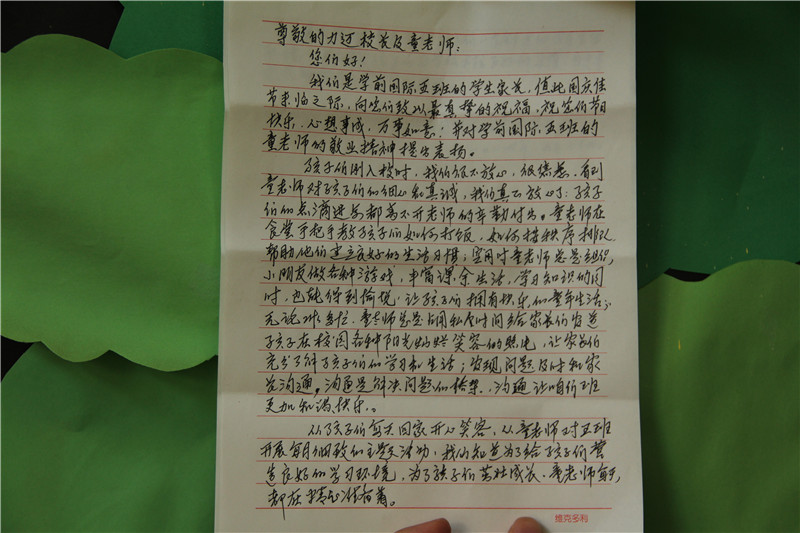 尊敬的力迈校长及童老师：
您们好！
我们是学前国际五班的学生家长，值此国庆佳
节来临之际，向您们致以最真挚的祝福，祝您们节日
快乐，心想事成，万事如意！并对学前国际五班的
童老师的敬业精神提出表扬。
孩子们刚入校时，我们很不放心，很焦急，看到
童老师对孩子们的细心和真诚，我们真正放心了；孩子
们的点滴进步都离不开老师的辛勤付出。童老师在
食堂手把手教孩子们如何打饭，如何按秩序排队
帮助他们建立良好的生活习惯；空闲时童老师总是组织
小朋友做各种游戏，丰富课余生活，学习知识的同
时，也能得到愉悦，让孩子们拥有快乐的童年生活；
无论多忙，童老师总是占用私人时间给家长们发送
孩子在校园各种阳光灿烂笑容的照片，让家长们
充分了解孩子们的学习和生活；发现问题及时和家
长沟通。沟通是解决问题的桥梁，沟通让咱们班
更加和谐、快乐。
从孩子们每天回家开心笑容，从童老师对五班
开展每日细致的主题活动，我们知道为了给孩子们营
造良好的学习环境，为了孩子们茁壮成长，童老师每天
都在精心准备着。
维克多利